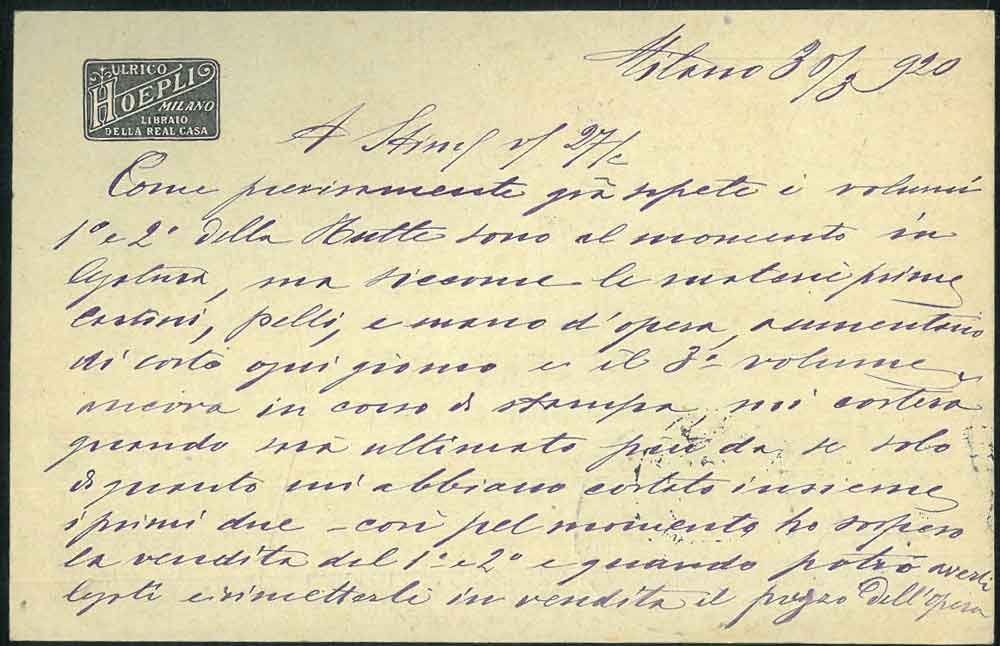 ULRICO
HOEPLI
MILANO
LIBRAIO
DELLA REAL CASA
Milano 30/3 920
A 27/c
Come precisamente già sapete i volumi
1º e 2º della Hütte sono al momento in
legatura, ma siccome le materie prime
cartoni, pelli, e mano d'opera, aumentano
di costo ogni giorno e il 3º volume
ancora in corso di stampa mi costerà
quando sarà ultimato più da se solo
di quanto mi abbiano costato insieme
i primi due – così pel momento ho sospeso
la vendita del 1º e 2º e quando potrò averli
legati e rimetterli in vendita il prezzo dell'opera